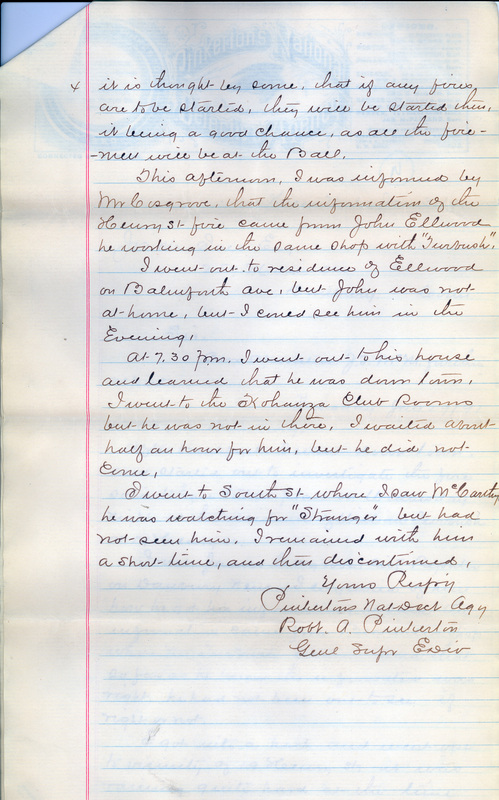 4 it is thought by some, that if any fires
are to be started, they will be started then,
it being a good chance, as all the fire-
-men will be at the Ball.
This afternoon, I was informed by
Mr Cosgrove, that the information of the
Henry St fire came from John Ellwood
he working in the same shop with "Furbush".
I went out to residence of Ellwood
on Balmforth ave, but John was not
at home, but I could see him in the
Evening.
At 7.30 p.m. I went out to his house
and learned that he was down town.
I went to the Kohanza Club Rooms
but he was not in there, I waited about
half an hour for him, but he did not
Come,
I went to South St where I saw McCarthy
he was watching for "Stranger" but had
not seen him. I remained with him
a short time, and then discontinued,
Yours Respy
Pinkertons Nat Dect Agy
Robt. A. Pinkerton
Genl Supr E Div